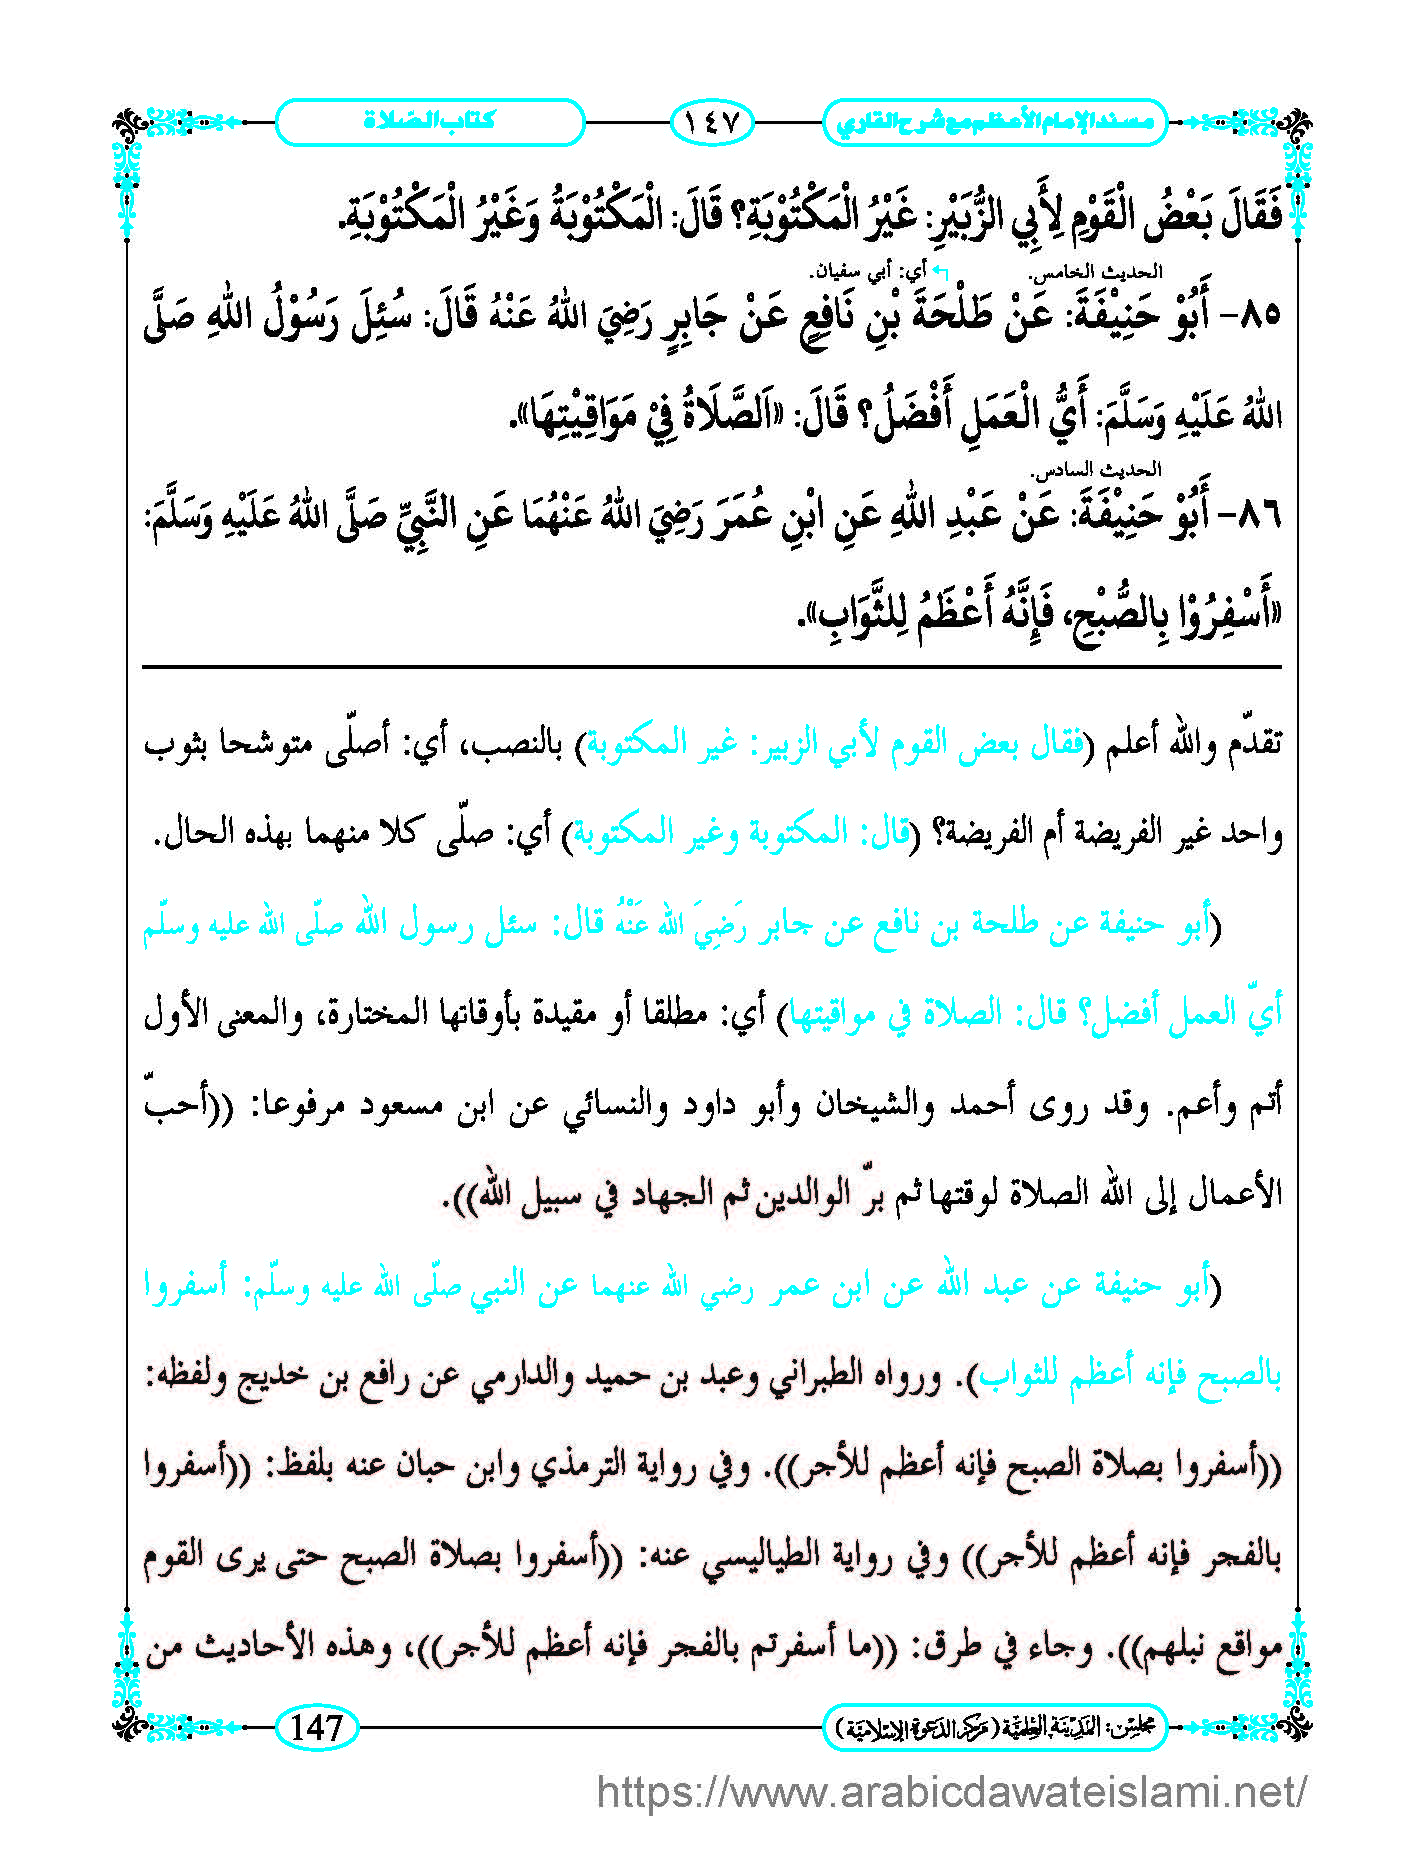 مسند الإمام الأعظم مع شرح القاري
١٤٧
كتاب الصلاة
فَقَالَ بَعْضُ الْقَوْمِ لِأَبِي الزُّبَيْرِ: غَيْرُ الْمَكْتُوْبَةِ؟ قَالَ: الْمَكْتُوْبَةُ وَغَيْرُ الْمَكْتُوْبَةِ.
الحديث الخامس. أي: أبي سفيان.
٨٥- أَبُوْ حَنِيْفَةَ: عَنْ طَلْحَةَ بْنِ نَافِعٍ عَنْ جَابِرٍ رَضِيَ اللهُ عَنْهُ قَالَ: سُئِلَ رَسُوْلُ اللهِ صَلَّى
اللهُ عَلَيْهِ وَسَلَّمَ: أَيُّ الْعَمَلِ أَفْضَلُ؟ قَالَ: «اَلصَّلَاةُ فِيْ مَوَاقِيْتِهَا».
الحديث السادس.
٨٦- أَبُوْ حَنِيْفَةَ: عَنْ عَبْدِ اللهِ عَنِ ابْنِ عُمَرَ رَضِيَ اللهُ عَنْهُمَا عَنِ النَّبِيِّ صَلَّى اللهُ عَلَيْهِ وَسَلَّمَ:
«أَسْفِرُوْا بِالصُّبْحِ، فَإِنَّهُ أَعْظَمُ لِلثَّوَابِ».
تقدّم والله أعلم (فقال بعض القوم لأبي الزبير: غير المكتوبة) بالنصب، أي: أصلّى متوشحا بثوب
واحد غير الفريضة أم الفريضة؟ (قال: المكتوبة وغير المكتوبة) أي: صلّى كلا منهما بهذه الحال.
(أبو حنيفة عن طلحة بن نافع عن جابر رَضِيَ الله عَنْهُ قال: سئل رسول الله صلّى الله عليه وسلّم
أيّ العمل أفضل؟ قال: الصلاة في مواقيتها) أي: مطلقا أو مقيدة بأوقاتها المختارة، والمعنى الأول
أتم وأعم. وقد روى أحمد والشيخان وأبو داود والنسائي عن ابن مسعود مرفوعا: ((أحبّ
الأعمال إلى الله الصلاة لوقتها ثم برّ الوالدين ثم الجهاد في سبيل الله)).
(أبو حنيفة عن عبد الله عن ابن عمر رضي الله عنهما عن النبي صلّى الله عليه وسلّم: أسفروا
بالصبح فإنه أعظم للثواب). ورواه الطبراني وعبد بن حميد والدارمي عن رافع بن خديج ولفظه:
((أسفروا بصلاة الصبح فإنه أعظم للأجر)). وفي رواية الترمذي وابن حبان عنه بلفظ: ((أسفروا
بالفجر فإنه أعظم للأجر)) وفي رواية الطياليسي عنه: ((أسفروا بصلاة الصبح حتى يرى القوم
مواقع نبلهم)). وجاء في طرق: ((ما أسفرتم بالفجر فإنه أعظم للأجر))، وهذه الأحاديث من
مجلس: المدينة العلمية (مركز الدعوة الإسلامية)
147
https://www.arabicdawateislami.net/